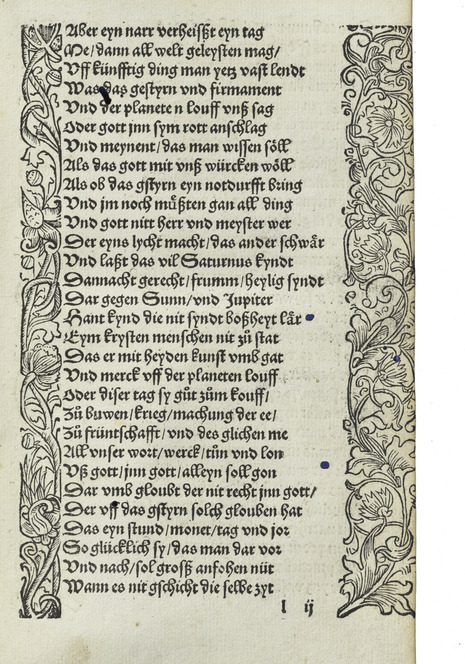 Aber eyn narr verheiſßt eyn tag
Me/dann all welt geleyſten mag/
Vff künfftig ding man yetz vaſt lendt
Was das geſtyrn vnd firmament
Vnd der planete n louff vnß ſag
Oder gott jnn ſym rott anſchlag
Vnd meynent/das man wiſſen ſöll
Als das gott mit vnß würcken wöll
Als ob das gſtyrn eyn notdurfft bring
Vnd jm noch muͤßten gan all ding
Vnd gott nitt herr vnd meyſter wer
Der eyns lycht macht/das ander ſchwaͤr
Vnd laßt das vil Saturnus kyndt
Dannacht gerecht/frumm/heylig ſyndt
Dar gegen Sunn/vnd Jupiter
Hant kynd die nit ſyndt boßheyt laͤr
Eym kryſten menſchen nit zů ſtat
Das er mit heyden kunſt vmb gat
Vnd merck vff der planeten louff
Oder diſer tag ſy gůt zům kouff/
Zů buwen/krieg/machung der ee/
Zů früntſchafft/vnd des glichen me
All vnſer wort/werck/tůn vnd lon
Vß gott/jnn gott/alleyn ſoll gon
Dar vmb gloubt der nit recht jnn gott/
Der vff das gſtyrn ſolch glouben hat
Das eyn ſtund/monet/tag vnd jor
So glücklich ſy/das man dar vor
Vnd nach/ſol groſß anfohen nüt
Wann es nit gſchicht die ſelbe zyt
l ij